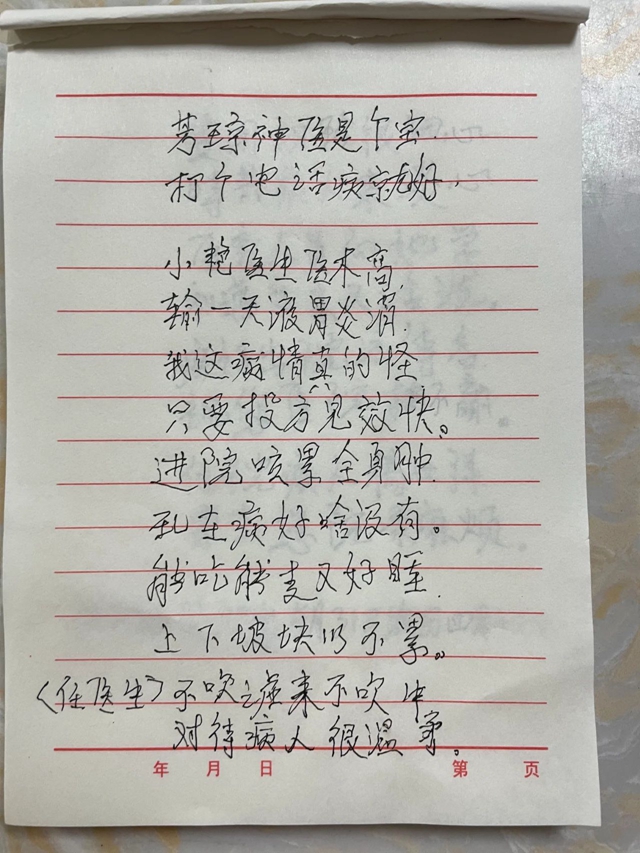 芳琼神医是个宝.
打个电话病就好.
小艳医生医术高.
输一天液胃炎消.
我这病情真的怪
只要投方见效快。
进院咳累全身肿.
现在病好啥没有。
能吃能走又好睡.
上下坡坎仍不累。
(任医生)不吹嘘来不吹牛
对待病人很温柔。
年 月 日 第 页